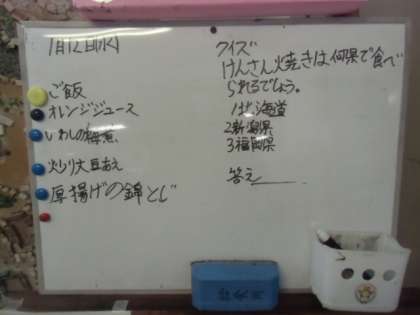 ご飯
オレンジジュース
いわしの梅煮
炒り大豆あえ
厚揚げの錦とじ
クイズ
けんさん焼きは何県で食べ
られるでしょう。
1北海道
2新潟県
3福岡県
答え